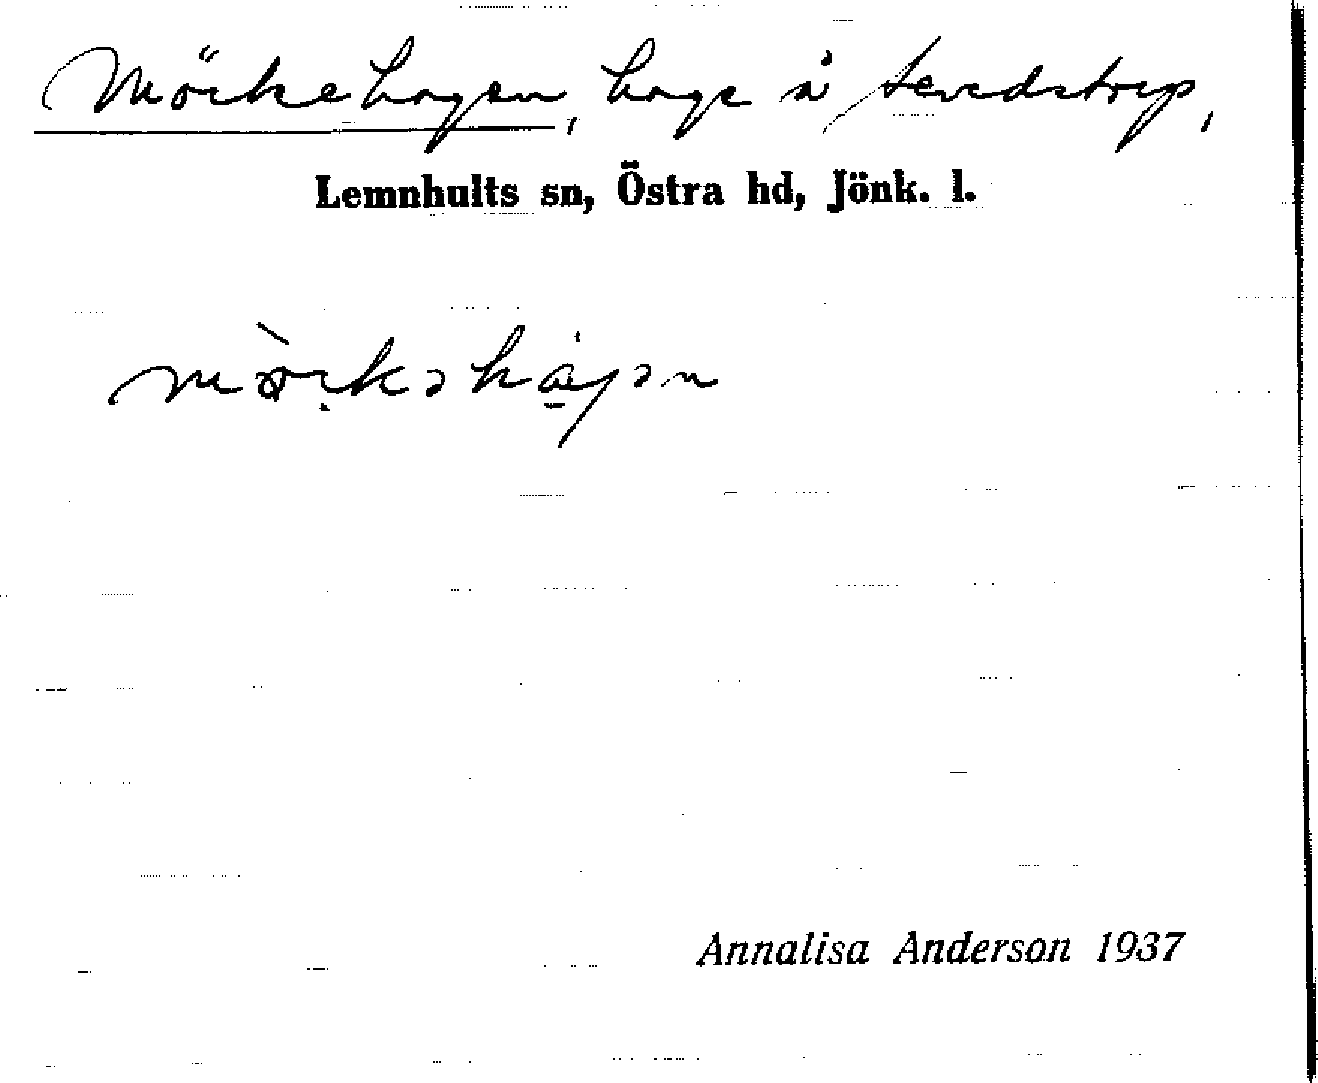 Mörkehagen, hage å
Lemnhults sn, Östra hd, Jönk. l.
mörkəhagən
Annalisa Anderson 1937